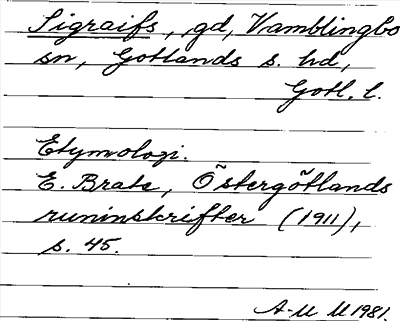 Sigraifs, gd, Vamblingbo
sn, Gotlands s. hd,
Gotl. l.
Etymologi.
E. Brate, Östergötlands
runinskrifter (1911),
s. 45.
A-M M 1981.